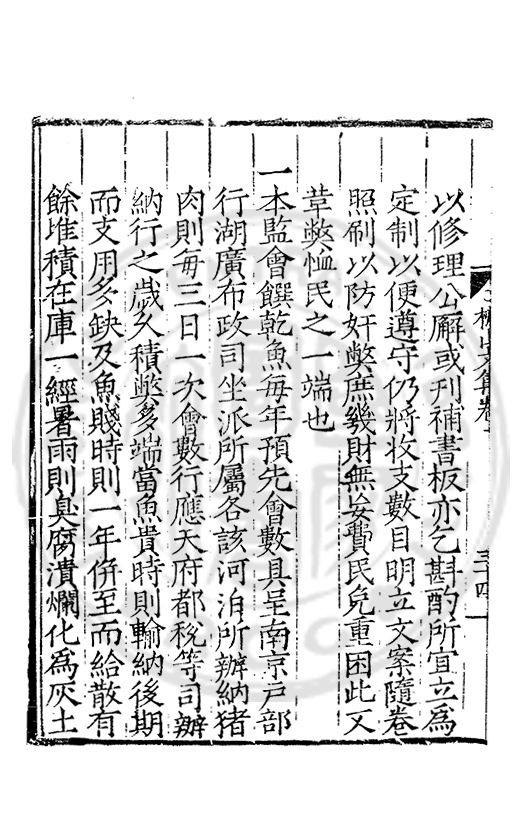 以修理公廨或刊補書板亦乞斟酌所宜立爲
定制以便遵守仍將收支數目明立文案隨卷
照刷以防奸弊庶幾財無妄費民免重困此又
革弊恤民之一端也
一本監會饌乾魚每年預先會數具呈南京戸部
行湖廣布政司坐派所屬各該河泊所辦納猪
肉則每三日一次會數行應天府都稅等司辦
納行之歲久積弊多端當魚貴時則輸納後期
而支用多缺及魚賤時則一年併至而給散有
餘堆積在庫一經暑雨則臭腐潰爛化爲灰土